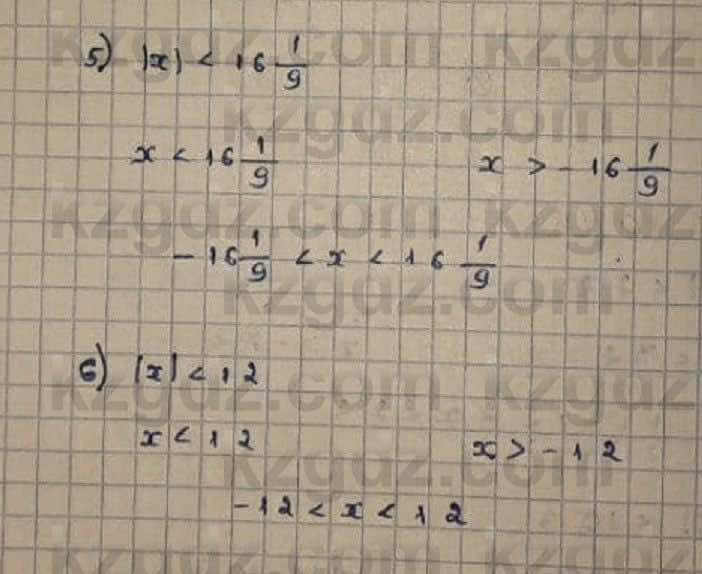 5) |x| < 16 1/9
x < 16 1/9 x > -16 1/9
-16 1/9 < x < 16 1/9
6) |x| < 12
x < 12 x > -12
-12 < x < 12
kzgdz.com kzgdz
kzgdz.com
kzgdz.com kzgdz
kzgdz.com
kzgdz.com kzgdz
kzgdz.com
kzgdz.com kzgdz